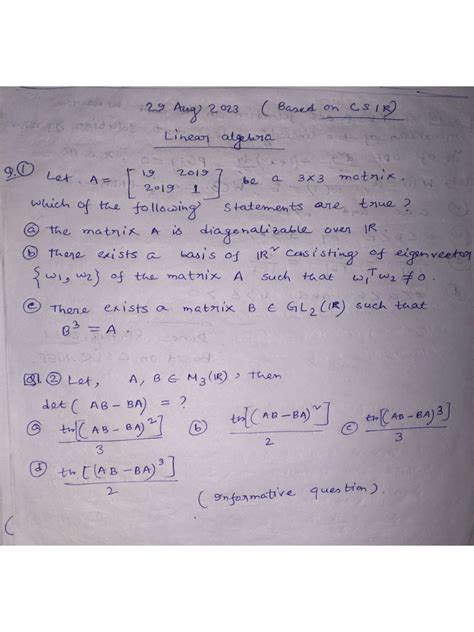 29 Aug 2023 ( Based on CSIR)
Linear algebra
Q.① Let A = [ 19 2019
2019 1 ] be a 3x3 matrix.
which of the following statements are true ?
ⓐ the matrix A is diagonalizable over IR.
ⓑ there exists a basis of IR² consisting of eigenvector
{w₁, w₂} of the matrix A such that w₁ᵀw₂ ≠ 0.
ⓒ There exists a matrix B ∈ GL₂(IR) such that
B³ = A.
Q.② Let, A, B ∈ M₃(IR), Then
det ( AB - BA ) = ?
ⓐ tr[(AB - BA)²] / 3 ⓑ tr[(AB - BA)²] / 2 ⓒ tr[(AB - BA)3] / 3
ⓓ tr[(AB - BA)³] / 2
( Informative question).